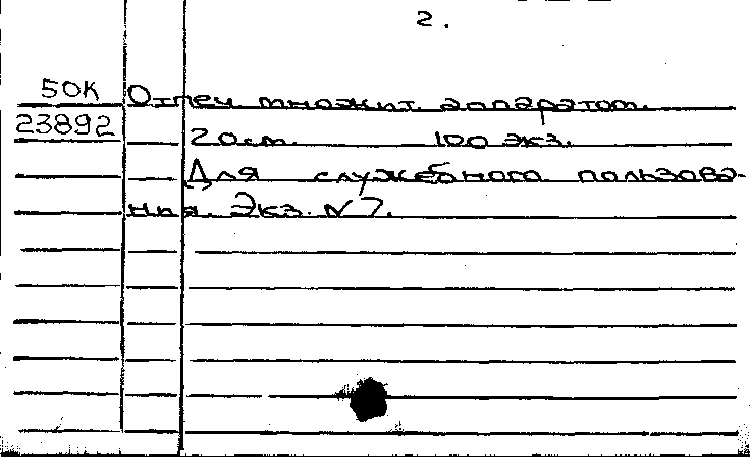 2.
50К Отпеч. множит. аппаратом.
23892 20см. 100 экз.
Для служебного пользова-
ния. Экз. N 7.